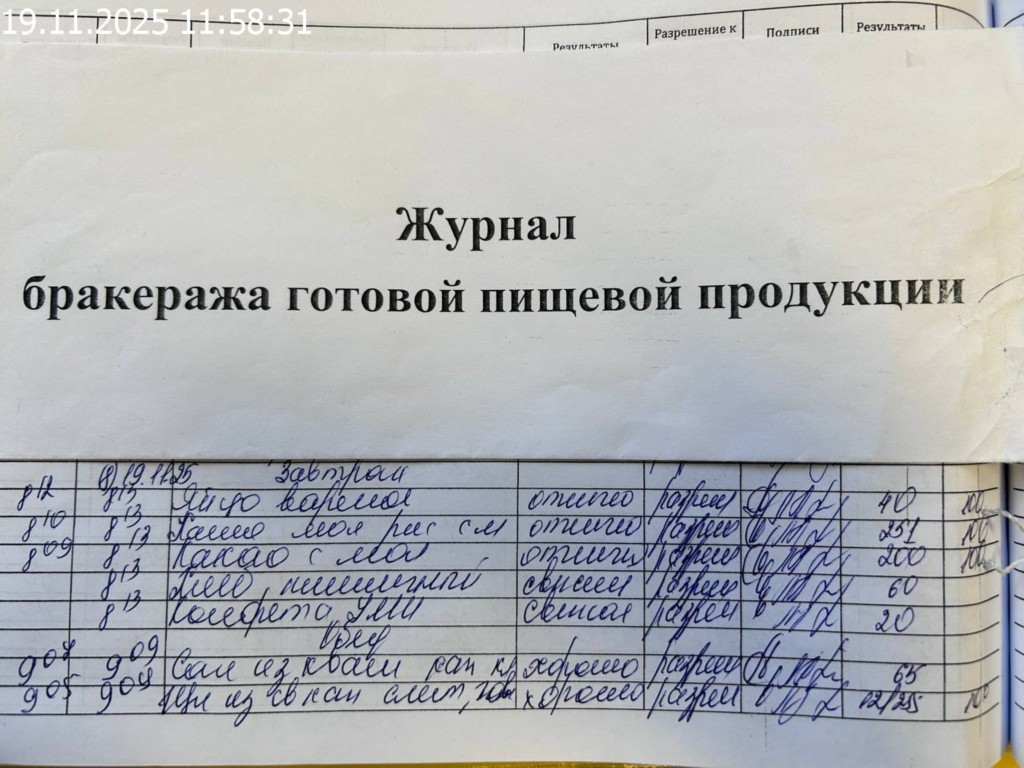 19.11.2025 11:58:31
Результаты Разрешение к Подписи Результаты
Журнал
бракеража готовой пищевой продукции
19.11.25 Завтрак
8 12 8 13 Яйцо вареное отлично разреш 40 100
8 10 8 13 Каша мол рис с м отлично разреш 251 100
8 09 8 13 Какао с мол отлично разреш 200 100
8 13 Хлеб пшеничный свежий разреш 60
8 13 Конфета разреш 20
Обед
9 07 9 09 Сал из кваш кап хорошо разреш 65
9 05 9 09 Щи из св кап смет, хорошо разреш 12/255 100